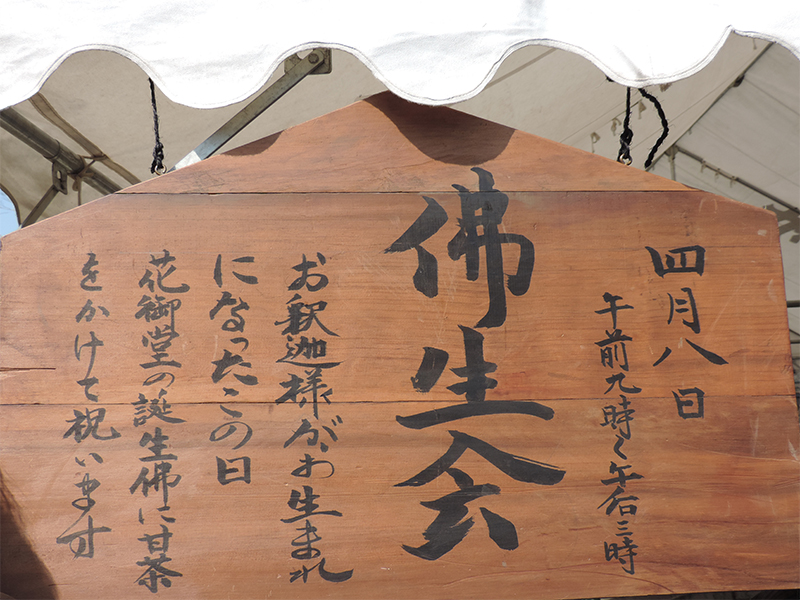 四月八日
午前九時〜午后三時
佛生会
お釈迦様がお生まれ
になったこの日
花御堂の誕生佛に甘茶
をかけて祝います